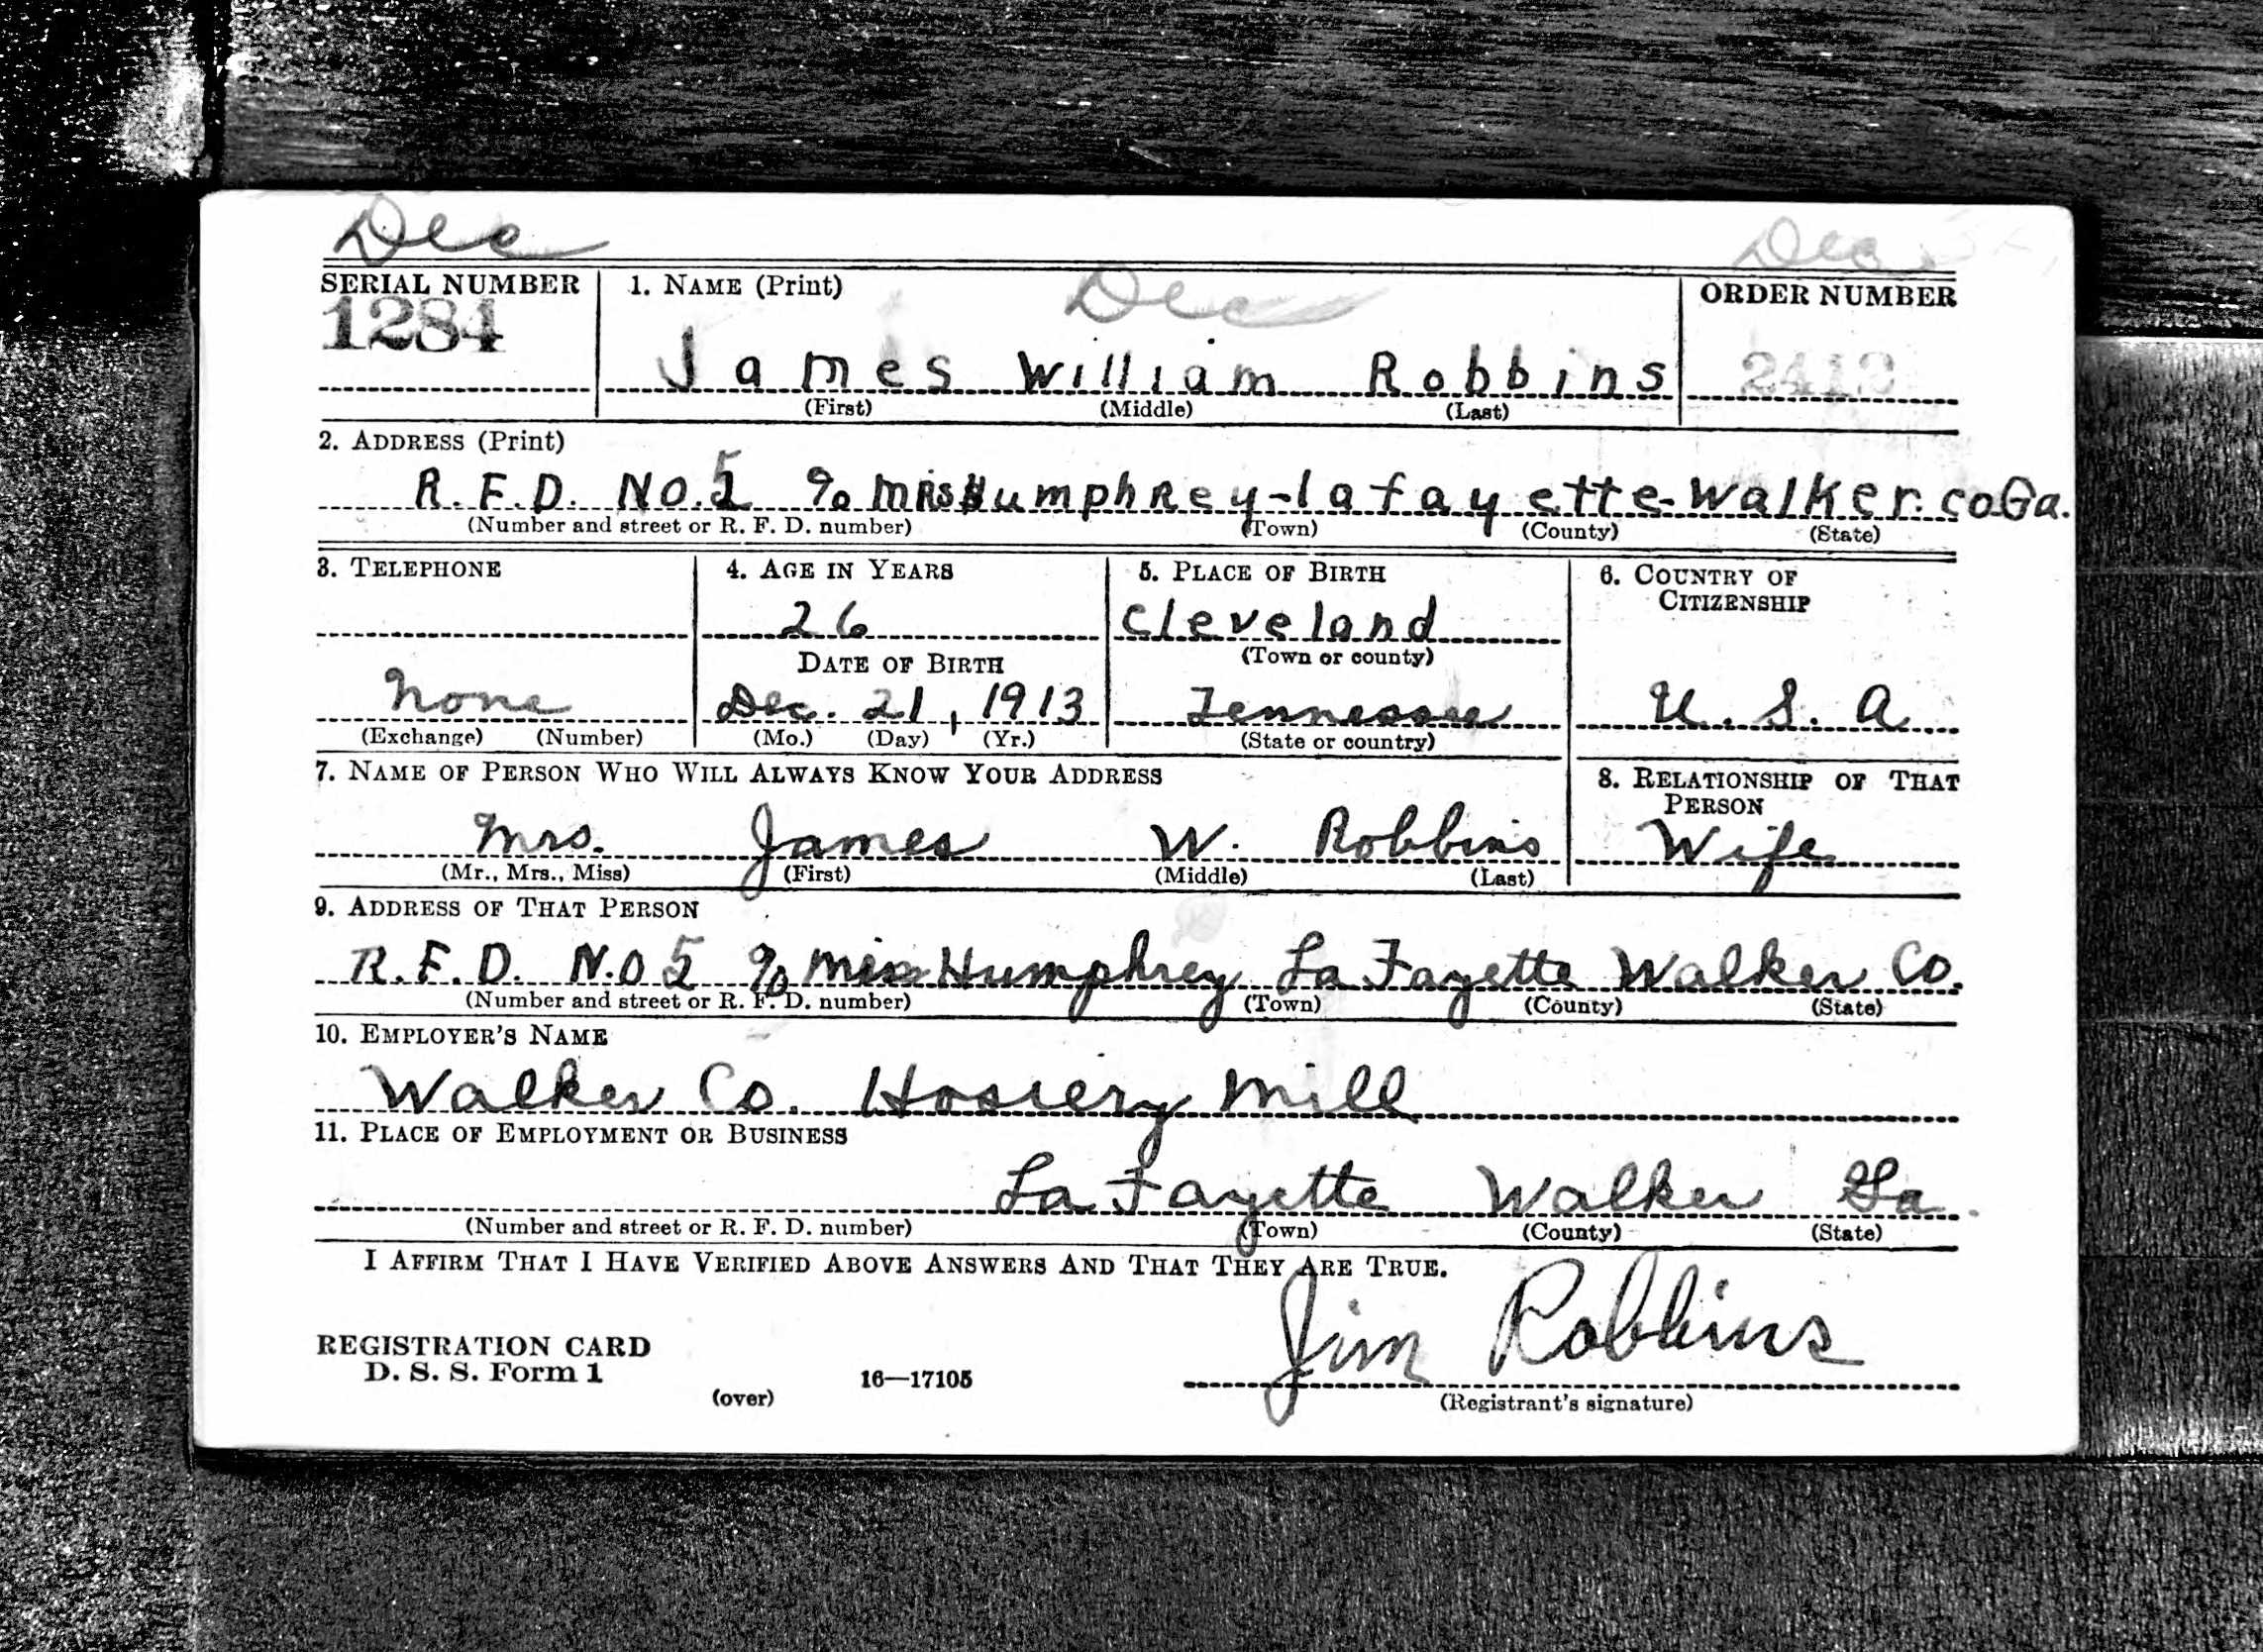 Dec Dec
SERIAL NUMBER 1. NAME (Print) Dec ORDER NUMBER
1284 James William Robbins
(First) (Middle) (Last)
2. ADDRESS (Print)
R.F.D. No. 5 % Mrs Humphrey-lafayette-Walker.coGa.
(Number and street or R. F. D. number) (Town) (County) (State)
3. TELEPHONE 4. AGE IN YEARS 5. PLACE OF BIRTH 6. COUNTRY OF
CITIZENSHIP
26 Cleveland
DATE OF BIRTH (Town or county)
None Dec. 21, 1913 Tennessee U. S. A
(Exchange) (Number) (Mo.) (Day) (Yr.) (State or country)
7. NAME OF PERSON WHO WILL ALWAYS KNOW YOUR ADDRESS 8. RELATIONSHIP OF THAT
PERSON
Mrs. James W. Robbins Wife
(Mr., Mrs., Miss) (First) (Middle) (Last)
9. ADDRESS OF THAT PERSON
R.F.D. N.o 5 % Humphrey La Fayette Walker Co.
(Number and street or R. F. D. number) (Town) (County) (State)
10. EMPLOYER'S NAME
Walker Co. Hosiery Mill
11. PLACE OF EMPLOYMENT OR BUSINESS
La Fayette Walker Ga.
(Number and street or R. F. D. number) (Town) (County) (State)
I AFFIRM THAT I HAVE VERIFIED ABOVE ANSWERS AND THAT THEY ARE TRUE.
Jim Robbins
REGISTRATION CARD
D. S. S. Form 1
(over) 16—17105 (Registrant's signature)